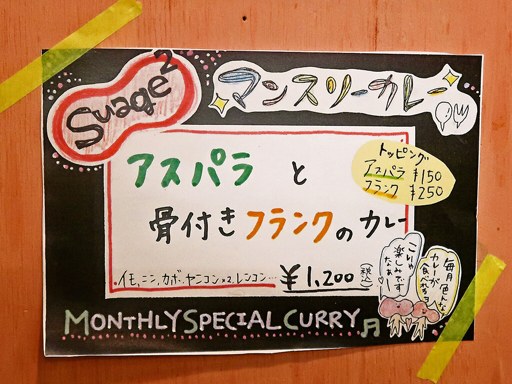 Suage2
マンスリーカレー
トッピング
アスパラ ¥150
フランク ¥250
アスパラ と
骨付きフランクのカレー
イモ、ニン、カボ、ヤニコン×2、レンコン… ¥1,200(税込)
毎月色んな
カレーが
食べれちゃう
こりゃ
楽しみです
なぁー
MONTHLY SPECIAL CURRY